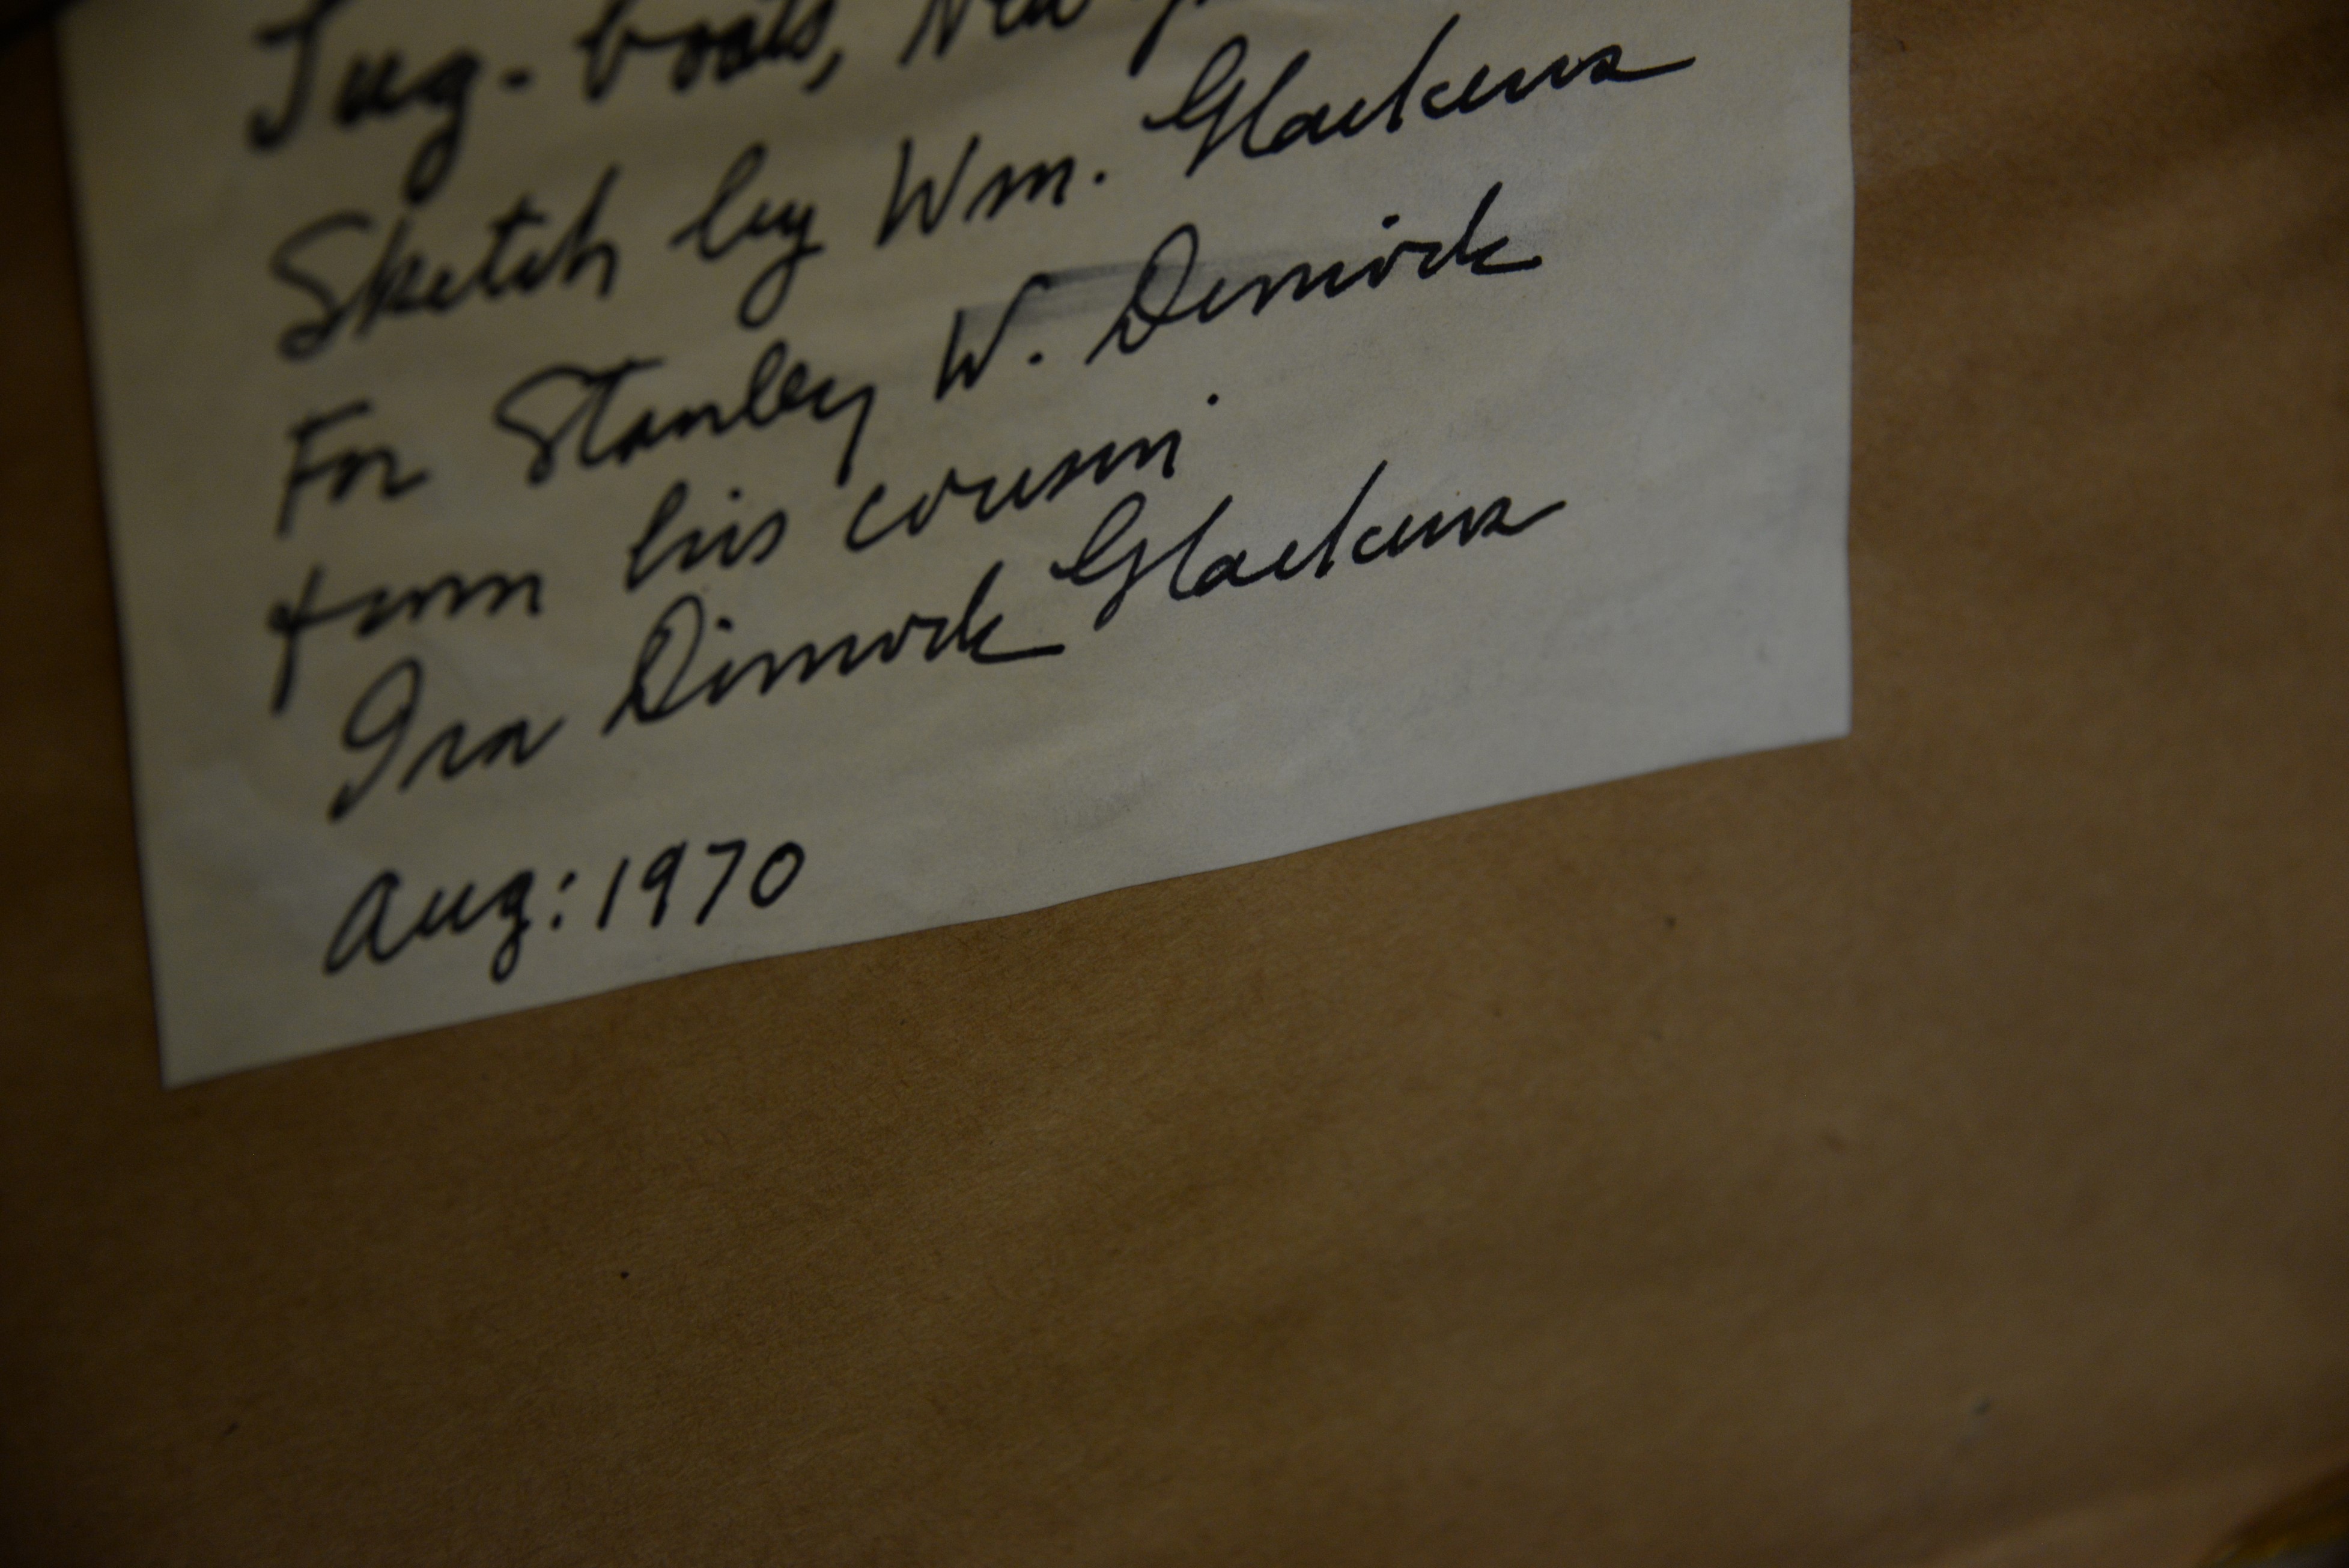 Tug-boats, New
Sketch by Wm. Glackens
For Stanley W. Dimock
from his cousin
Ira Dimock Glackens
Aug: 1970